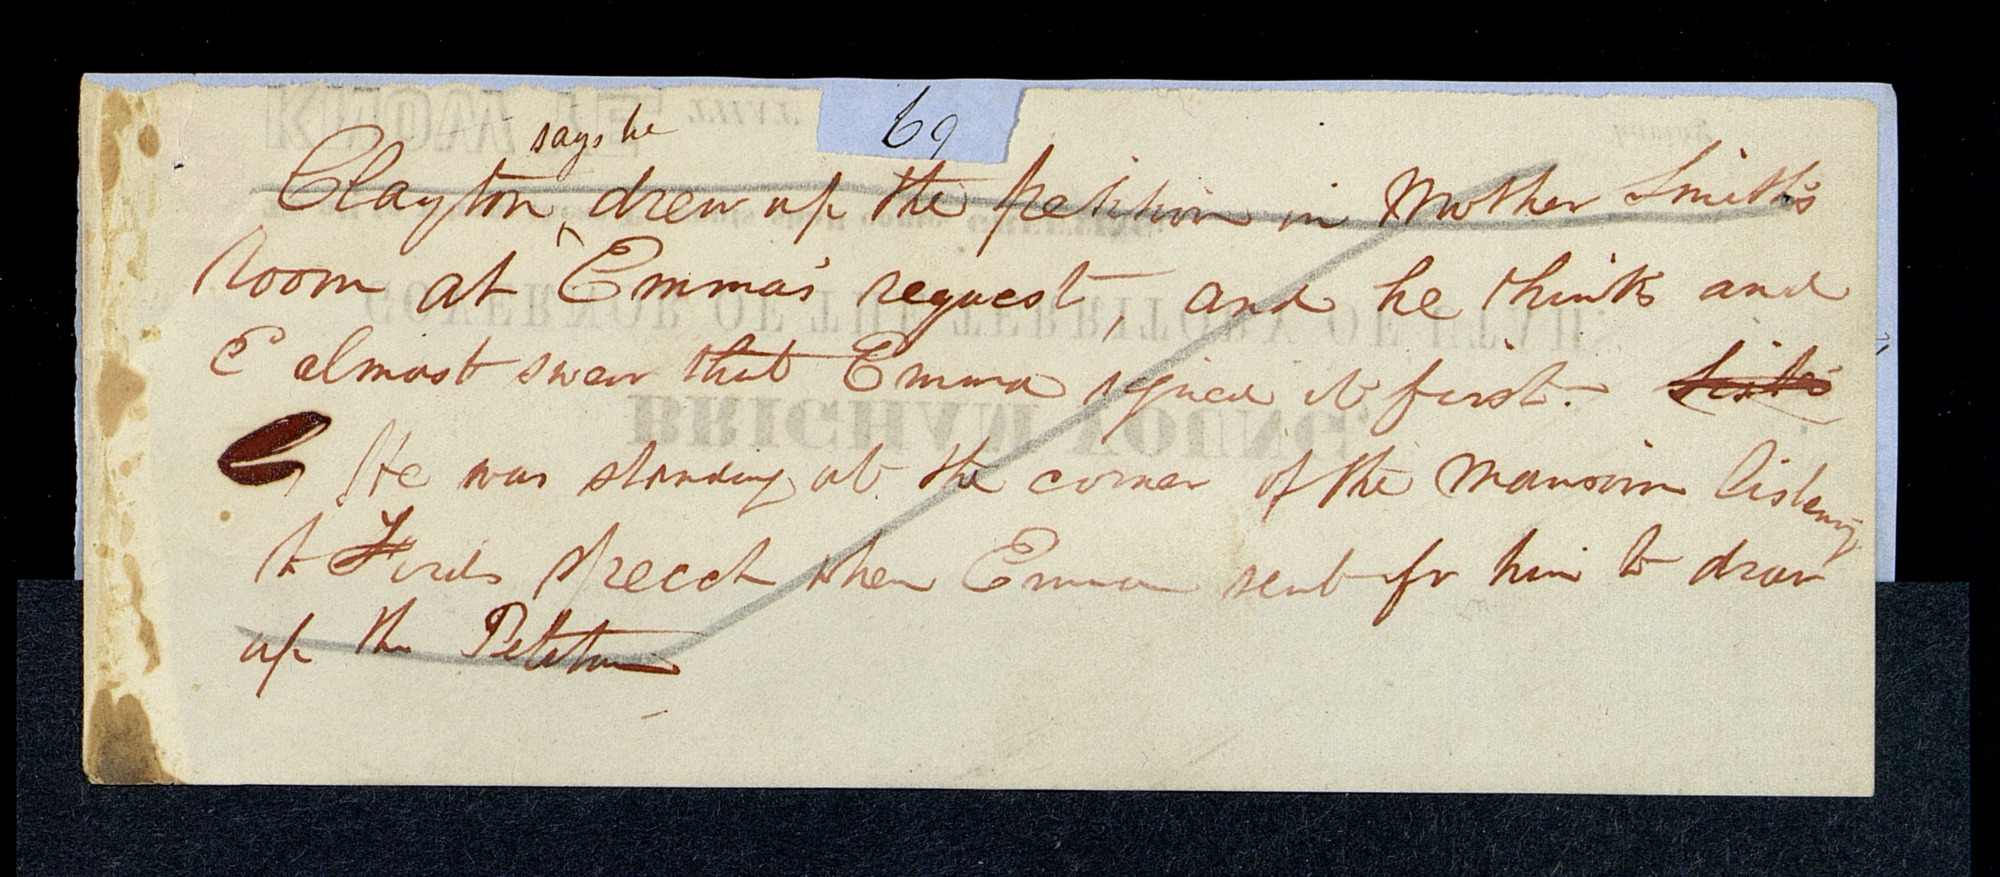 69
says he
Clayton drew up the petition in Mother Smith's
Room at Emma's request, and he thinks and
C almost swear that Emma signed it first.
He was standing at the corner of the Mansion listeng
to Fords speech when Emma sent for him to draw
up the Petition
KNOW YE
GOVERNOR OF THE TERRITORY OF UTAH
BRIGHAM YOUNG